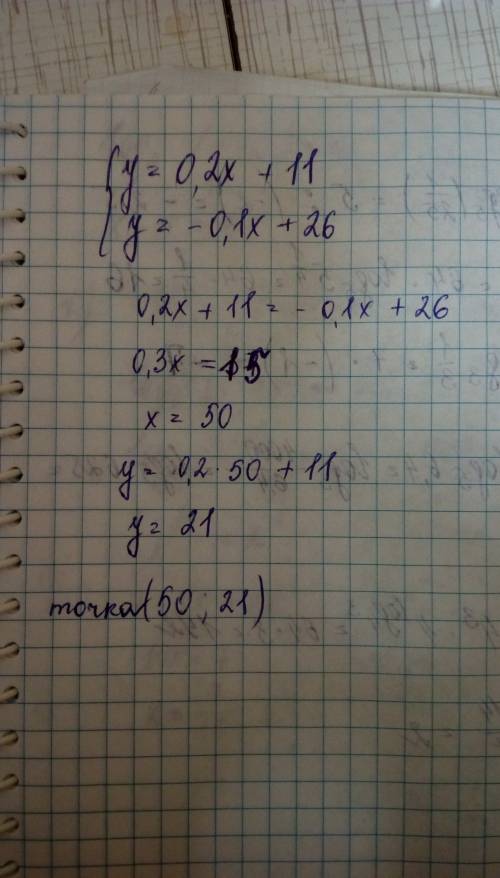 y = 0,2x + 11
y = - 0,1x + 26
0,2x + 11 = - 0,1x + 26
0,3x = 15
x = 50
y = 0,2 · 50 + 11
y = 21
точка (50 ; 21)